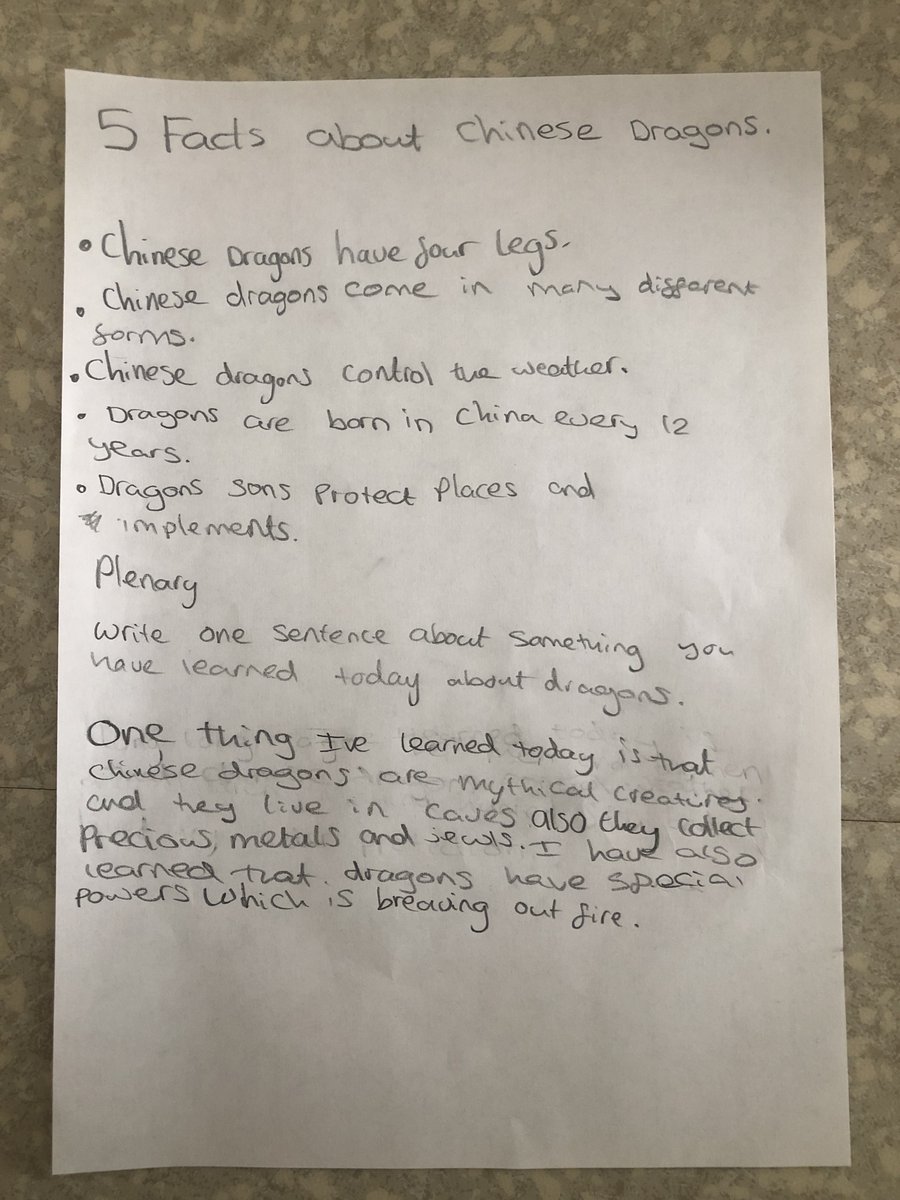 5 Facts about Chinese Dragons.
• Chinese Dragons have four legs.
• Chinese dragons come in many different
forms.
• Chinese dragons control the weather.
• Dragons are born in China every 12
years.
• Dragons sons Protect Places and
implements.
Plenary
Write one sentence about something you
have learned today about dragons.
One thing I've learned today is that
Chinese dragons are mythical creatures.
and they live in caves also they collect
Precious, metals and jewls. I have also
learned that. dragons have special
powers which is breaving out fire.